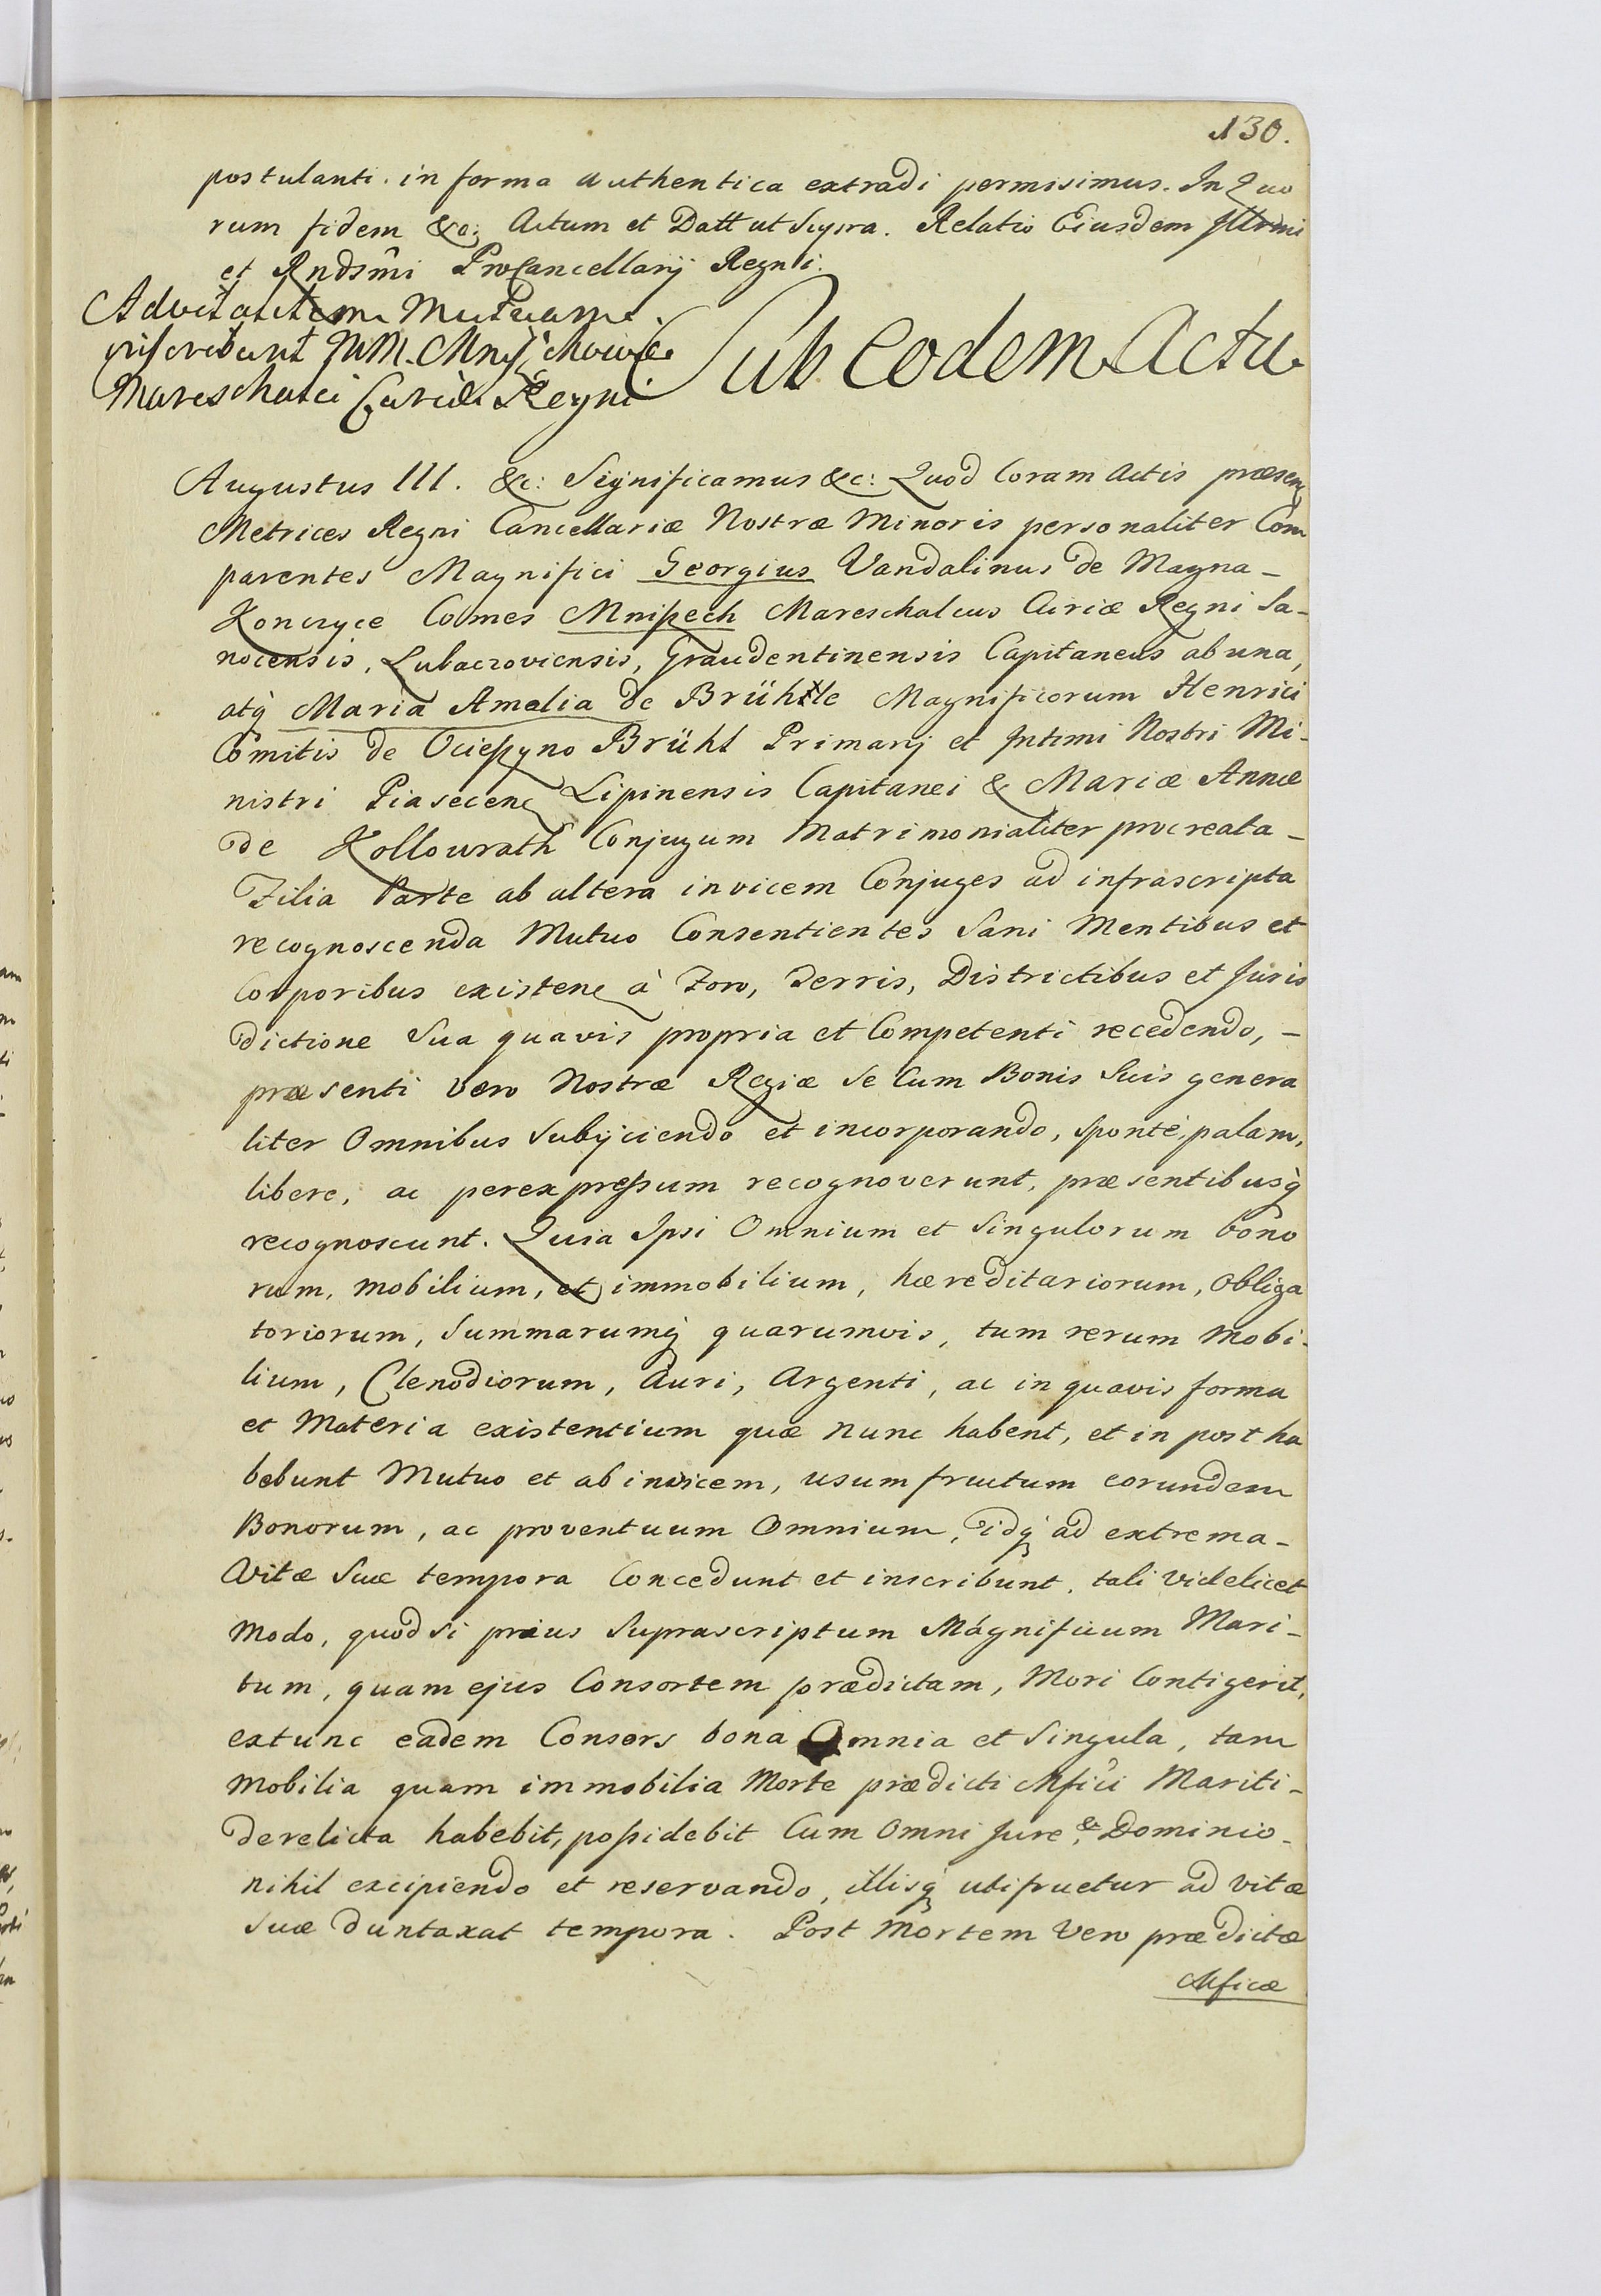 130.
postulanti. in forma authentica extradi permisimus. In Quo
rum fidem &c: Actum et Datt ut Supra. Relatio Eiusdem Illrmi
et Rndsm̃i ProCancellarij Regni.
Advitalitatem Mutuam
inscribunt MM.
Mareschalci Curiæ Regni
Sub Eodem Actu
Augustus III. &c: Significamus &c: Quod Coram Actis præsen
Metrices Regni Cancellariæ Nostræ Minoris personaliter Com
parentes Magnifici Georgius Vandalinus de Magna -
Konczyce Comes Mniszech Mareschalcus Curiæ Regni Sa-
nocensis, Lubaczoviensis, Graudentinensis Capitaneus ab una,
atq̀ Maria Amelia de Brühle Magnificorum Henrici
Comitis de Ocieszyno Brühl Primarij et Intimi Nostri Mi-
nistri Piasecen Lipinensis Capitanei & Mariæ Annæ
de Kollowrath Conjugum Matrimonialiter procreata -
Filia Parte ab altera invicem Conjuges ad infrascripta
recognoscenda Mutuo Consentientes Sani Mentibus et
Corporibus existen à Foro, Terris, Districtibus et Juris
dictione Sua quavis propria et Competenti recedendo, -
præsenti vero Nostræ Regiæ Se Cum Bonis Suis genera
liter Omnibus Subijciendo et incorporando, sponte, palam,
libere, ac per expressum recognoverunt, præsentibusq̀
recognoscunt. Quia Ipsi Omnium et Singulorum bono
rum, mobilium, et immobilium, hæreditariorum, Obliga
toriorum, Summarumq̀ quarumvis, tum rerum Mobi-
lium, Clenodiorum, Auri, Argenti, ac in quavis forma
et Materia existentium quæ nunc habent, et in post ha
bebunt Mutuo et ab invicem, usumfructum eorundem
Bonorum, ac proventuum Omnium, idq̀ ad extrema -
Vitæ Suæ tempora Concedunt et inscribunt, tali videlicet
Modo, quod si prius Suprascriptum Magnificum Mari-
tum, quam ejus Consortem prædictam, Mori Contigerit,
extunc eadem Consors bona Omnia et Singula, tam
Mobilia quam immobilia Morte prædicti Mfici Mariti -
derelicta habebit, possidebit Cum Omni Jure & Dominio -
nihil excipiendo et reservando, illisq̀ utifruetur ad vitæ
Suæ duntaxat tempora. Post Mortem Vero prædictæ
Mficæ